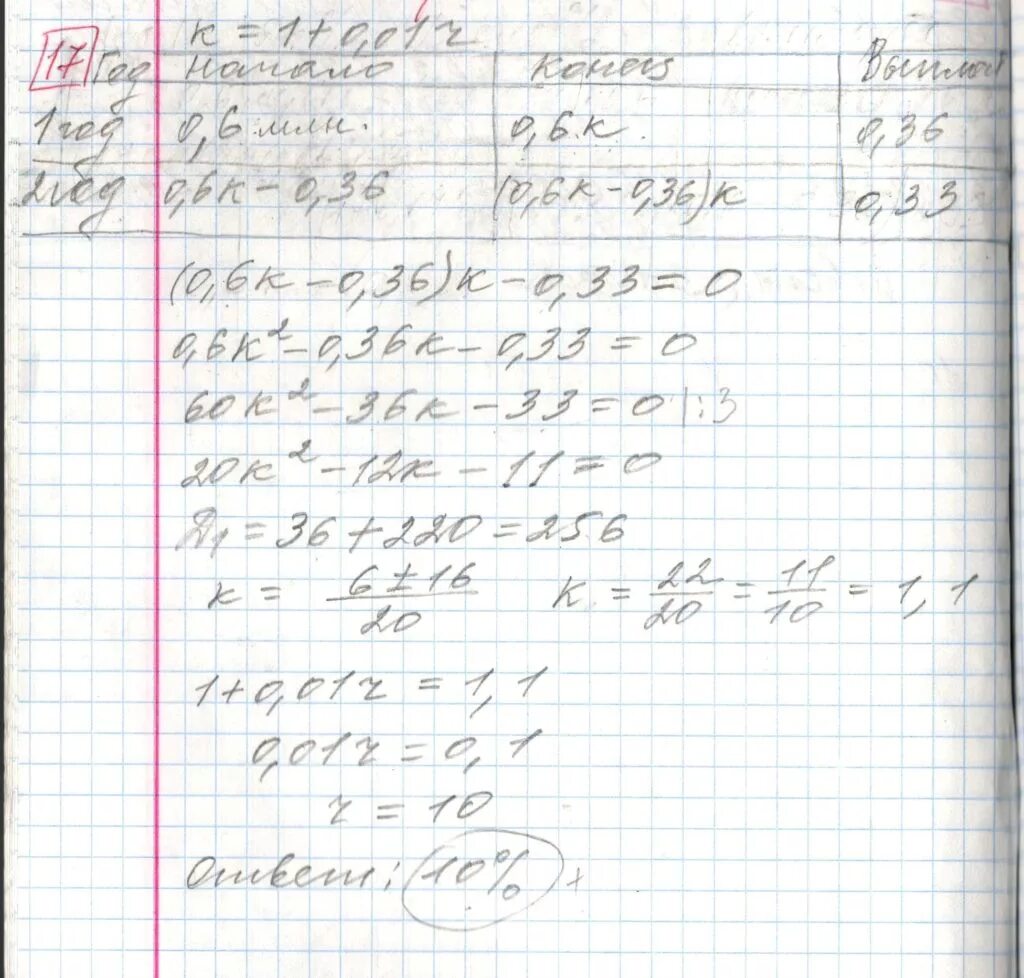 k = 1+0,01r
17 Год начало конец Выплат
1 год 0,6 млн. 0,6.k 0,36
2 год 0,6k - 0,36 (0,6k - 0,36)k 0,33
(0,6k - 0,36)k - 0,33 = 0
0,6k² - 0,36k - 0,33 = 0
60k² - 36k - 33 = 0 |:3
20k² - 12k - 11 = 0
Д₁ = 36 + 220 = 256
k = (6 ± 16)/20 k = 22/20 = 11/10 = 1,1
1+0,01r = 1,1
0,01r = 0,1
r = 10
Ответ: 10% +